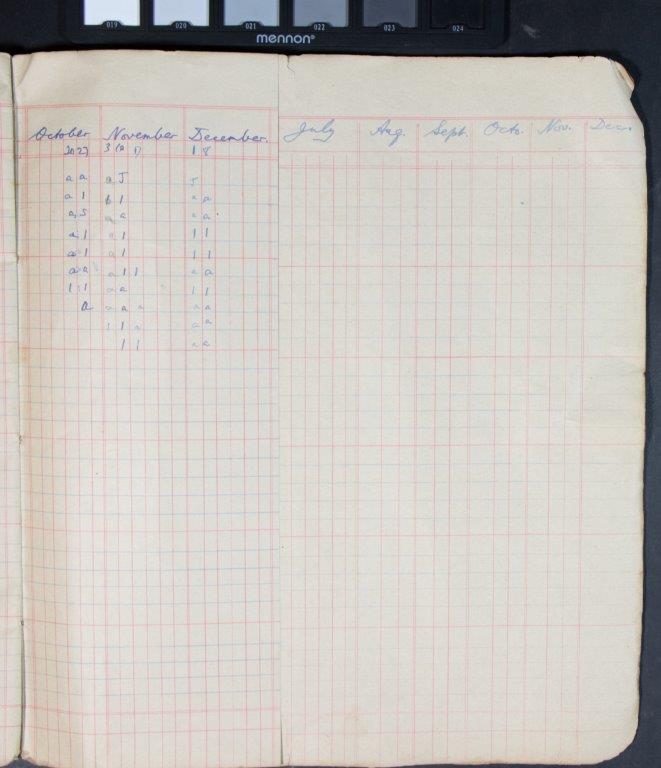 019 020 021 022 023 024
mennon
October November December.
20 27 3 10 17 1 8
a a a J J
a 1 b 1 a a
a J a a a a
a 1 a 1 1 1
a 1 a 1 1 1
a a a 1 1 a a
1 1 a a 1 1
a a a a a a
1 1 a a a
1 1 a a
July Aug. Sept. Octo. Nov. Dec.